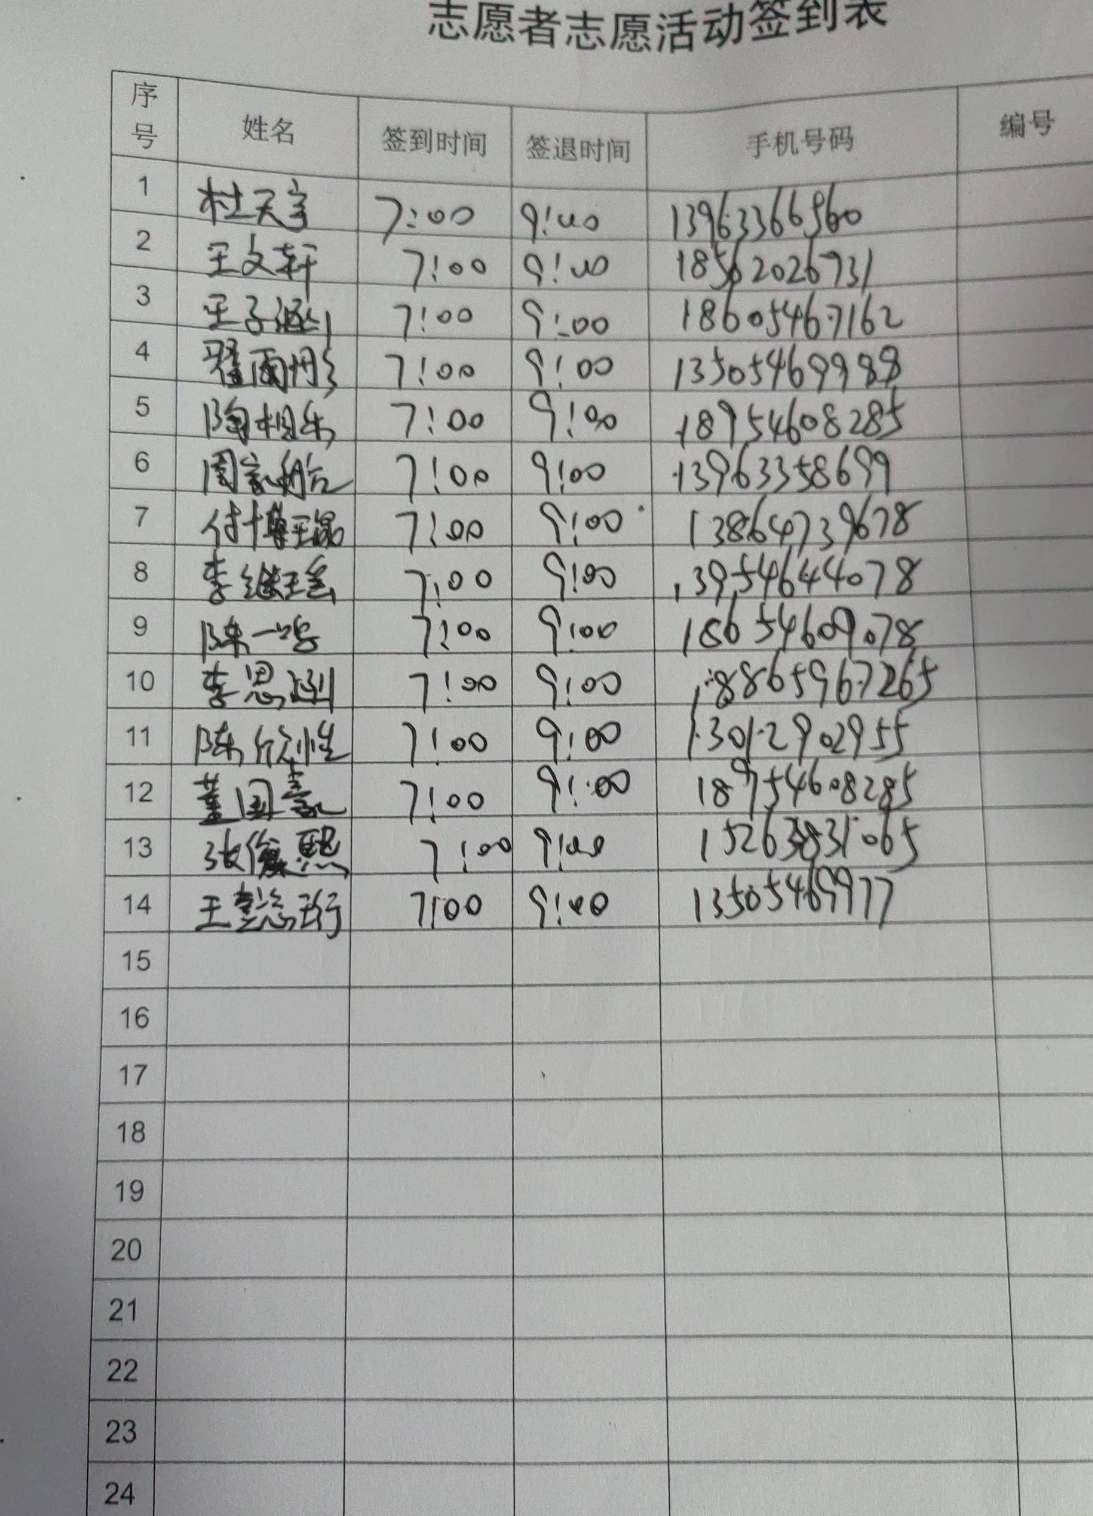 志愿者志愿活动签到表
序号 姓名 签到时间 签退时间 手机号码 编号
1 杜天宇 7:00 9:00 13963366560
2 王文轩 7:00 9:00 18562026731
3 王子涵 7:00 9:00 18605467162
4 翟雨彤 7:00 9:00 13505469988
5 陶相乐 7:00 9:00 18954608285
6 周家船 7:00 9:00 13963358699
7 付博 7:00 9:00 13864739678
8 李继瑶 7:00 9:00 13954644078
9 陈一鸣 7:00 9:00 18654609078
10 李思涵 7:00 9:00 18865967265
11 陈 7:00 9:00 13012902955
12 董国豪 7:00 9:00 18954608285
13 张俊熙 7:00 9:00 15263831065
14 王 7:00 9:00 13505469977
15
16
17
18
19
20
21
22
23
24